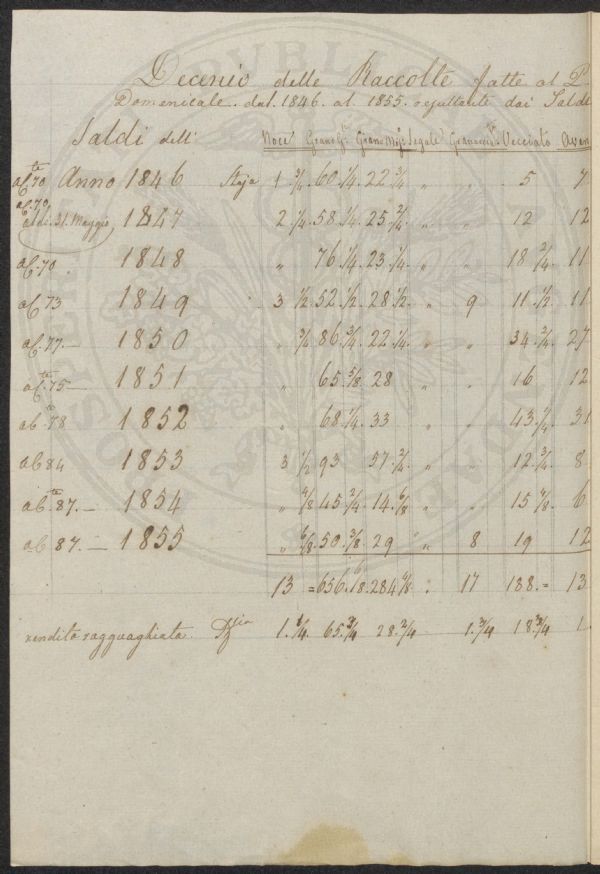 Decenio delle Raccolte fatte al P
Domenicale dal 1846 al 1855 resultante dai Saldi
Saldi dell' Noci Grano G. Grano Mis. Segale Granturco Vecciato Aven
a C. 70 Anno 1846 Staja 1 3/4 60 1/4 22 3/4 " " 5 7
a C. 70
aldi 31. Maggio 1847 2 1/4 58 1/4 25 2/4 " " 12 12
a C. 70 1848 " 76 1/4 23 1/4 " " 18 2/4 11
a C. 73 1849 3 1/2 52 1/2 28 1/2 " 9 11 1/2 11
a C. 77 1850 " 3/4 86 3/4 22 1/4 " " 34 3/4 27
a C. 75 1851 " 65 5/8 28 " " 16 12
a C. 78 1852 " 68 1/4 33 " " 43 31
a C. 84 1853 3 1/2 93 57 2/4 " " 12 3/4 8
a C. 87. 1854 " 45 2/4 14 6/8 " " 15 7/8 6
a C. 87. 1855 " 6/8 50 3/8 29 " 8 19 12
13 = 656 284 " 17 188 = 13
rendita ragguagliata 1. 1/4 65 3/4 28 2/4 1. 3/4 18 3/4 1